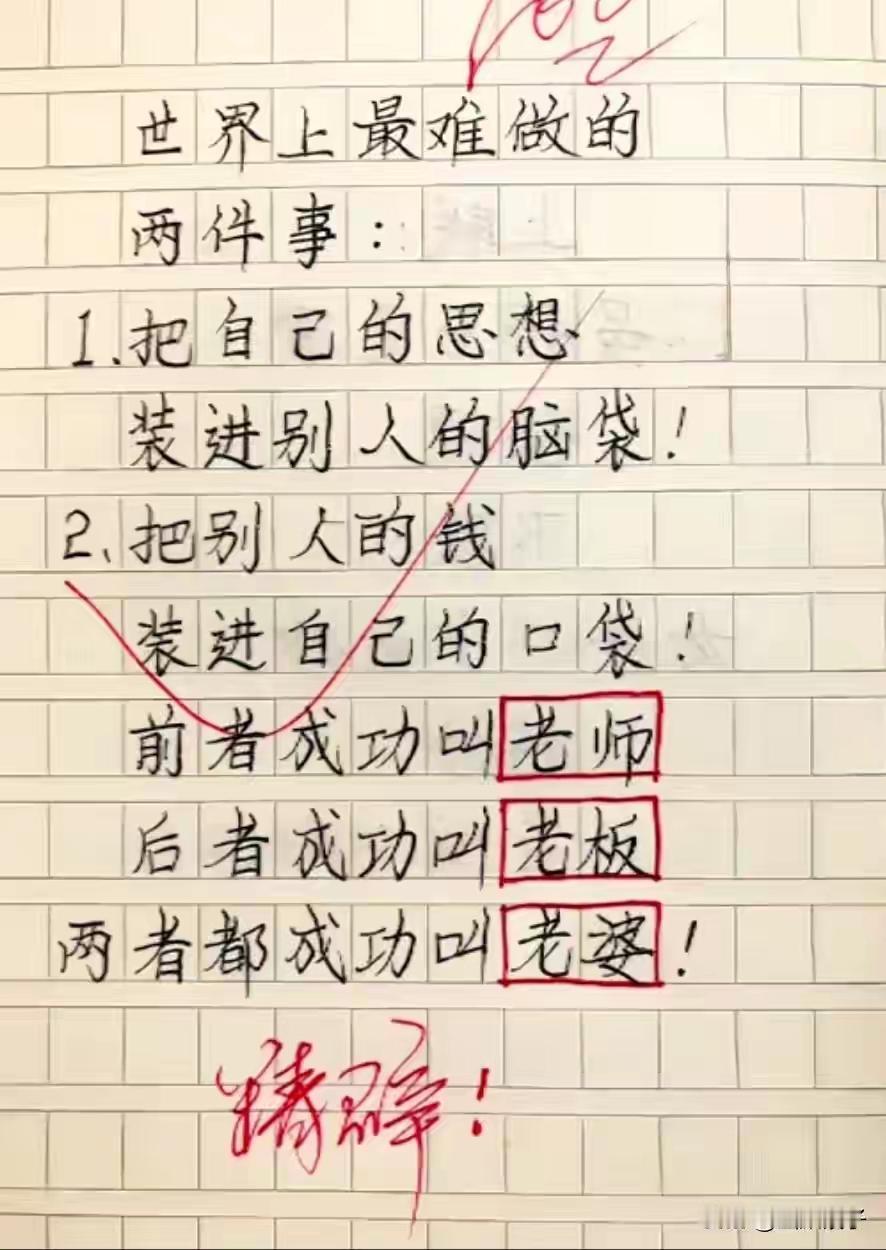 世界上最难做的
两件事：
1.把自己的思想
装进别人的脑袋！
2、把别人的钱
装进自己的口袋！
前者成功叫老师
后者成功叫老板
两者都成功叫老婆！
精辟！